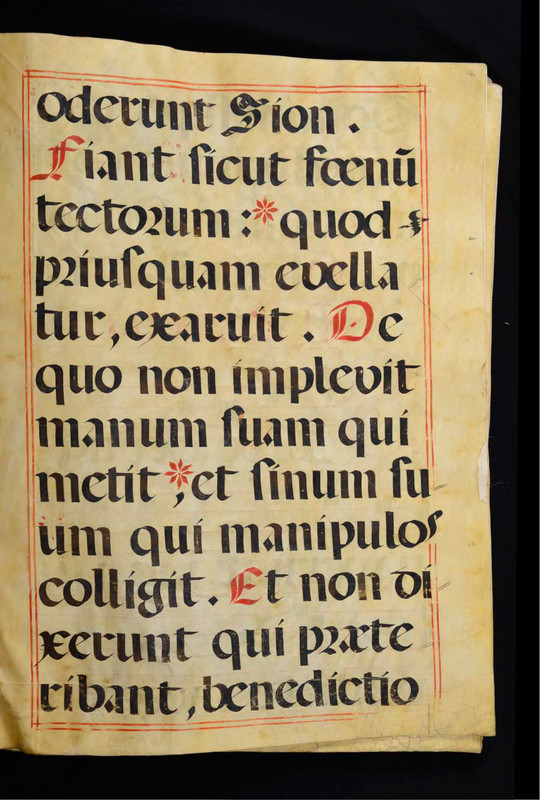 oderunt Sion .
Fiant ſicut fœnū
tectorum :* quod
priuſquam evella
tur, exaruit . De
quo non implevit
manum ſuam qui
metit *, et ſinum ſu
um qui manipulos
colligit . Et non di
xerunt qui præte
ribant, benedictio